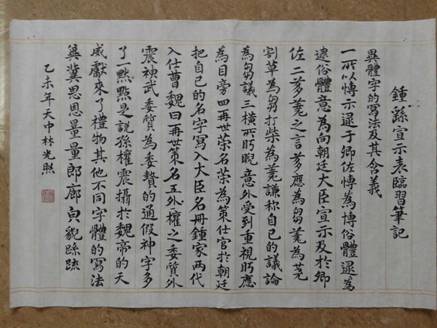 鍾繇宣示表臨習筆記
異體字的寫法及其含義
一所以愽示遐于卿佐愽為博俗體遐為
遐俗體意為向朝廷大臣宣示及於卿
佐二芻蕘之言芻應為芻蕘為蕘
割草為芻打柴為蕘謙称自己的議論
為芻議三橫所盻睨意外受到重視盻應
為目旁四再世荣名荣為策仕官於朝廷
把自己的名字寫入大臣名冊鍾家两代
入仕曹魏曰再世策名五外權之委質外
震神武委質為委贄的通假神字多
了一點點是說孫權震攝於魏帝的天
威獻來了禮物其他不同字體的寫法
冀恩恩量量郎廊貌疏
乙未年天中林光熙